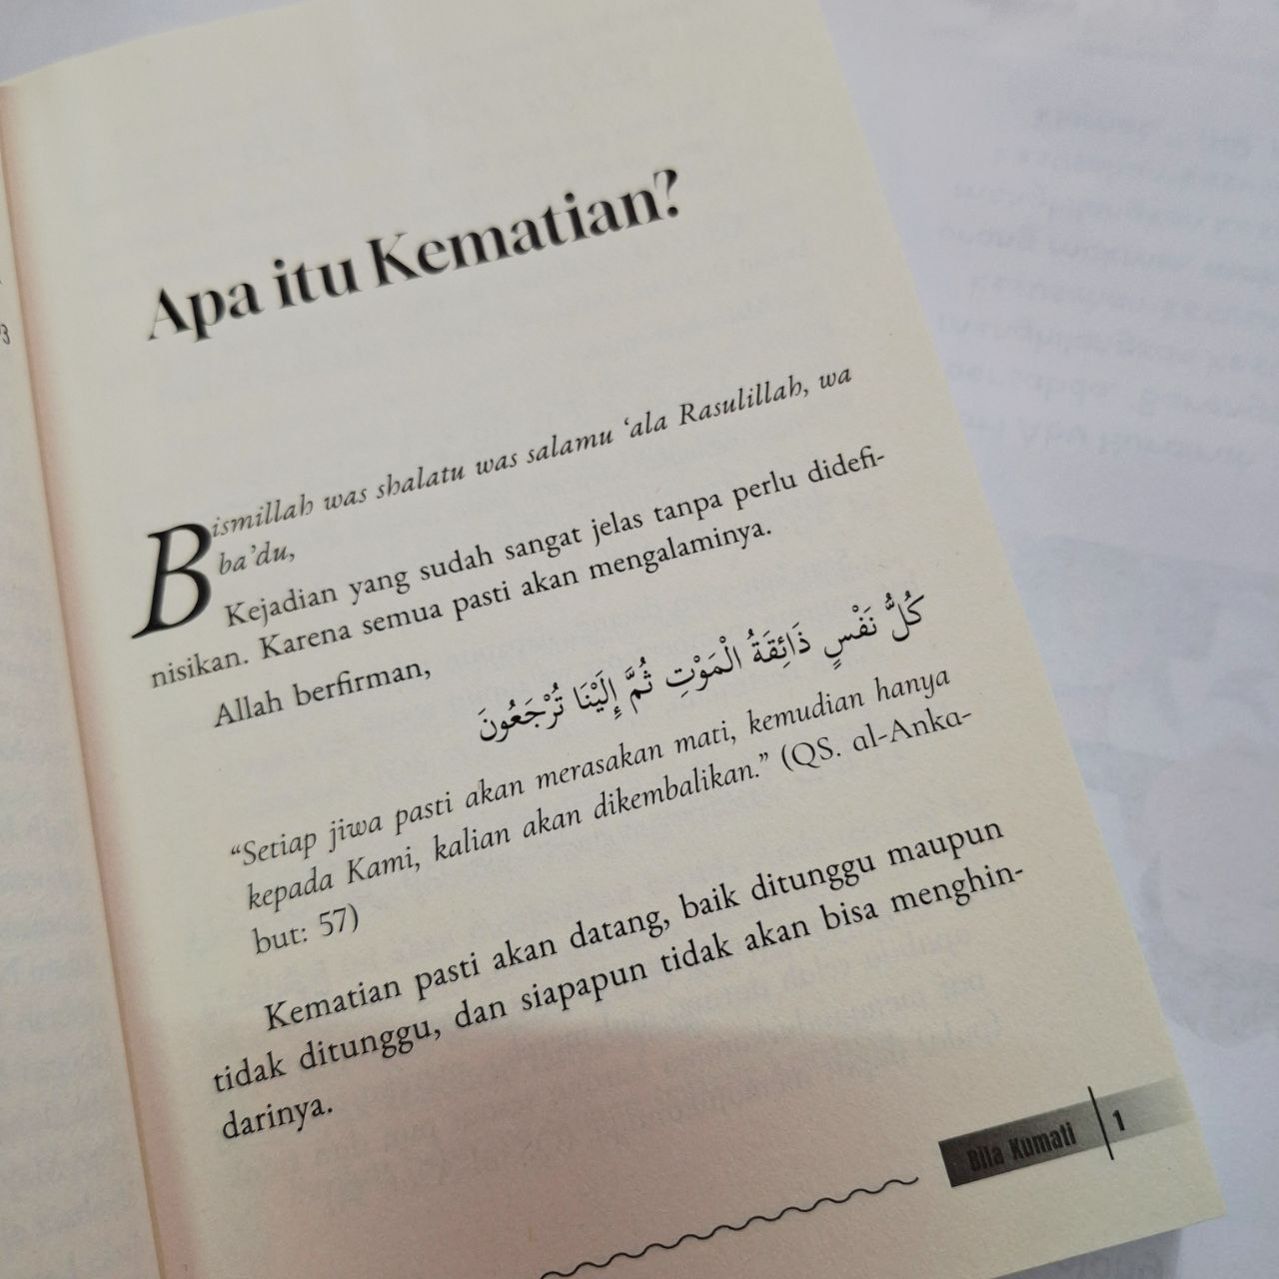 Apa itu Kematian?
Bismillah was shalatu was salamu ‘ala Rasulillah, wa
ba’du,
Kejadian yang sudah sangat jelas tanpa perlu didefi-
nisikan. Karena semua pasti akan mengalaminya.
Allah berfirman,
كُلُّ نَفْسٍ ذَائِقَةُ الْمَوْتِ ثُمَّ إِلَيْنَا تُرْجَعُونَ
“Setiap jiwa pasti akan merasakan mati, kemudian hanya
kepada Kami, kalian akan dikembalikan.” (QS. al-Anka-
but: 57)
Kematian pasti akan datang, baik ditunggu maupun
tidak ditunggu, dan siapapun tidak akan bisa menghin-
darinya.
Bila Kumati | 1